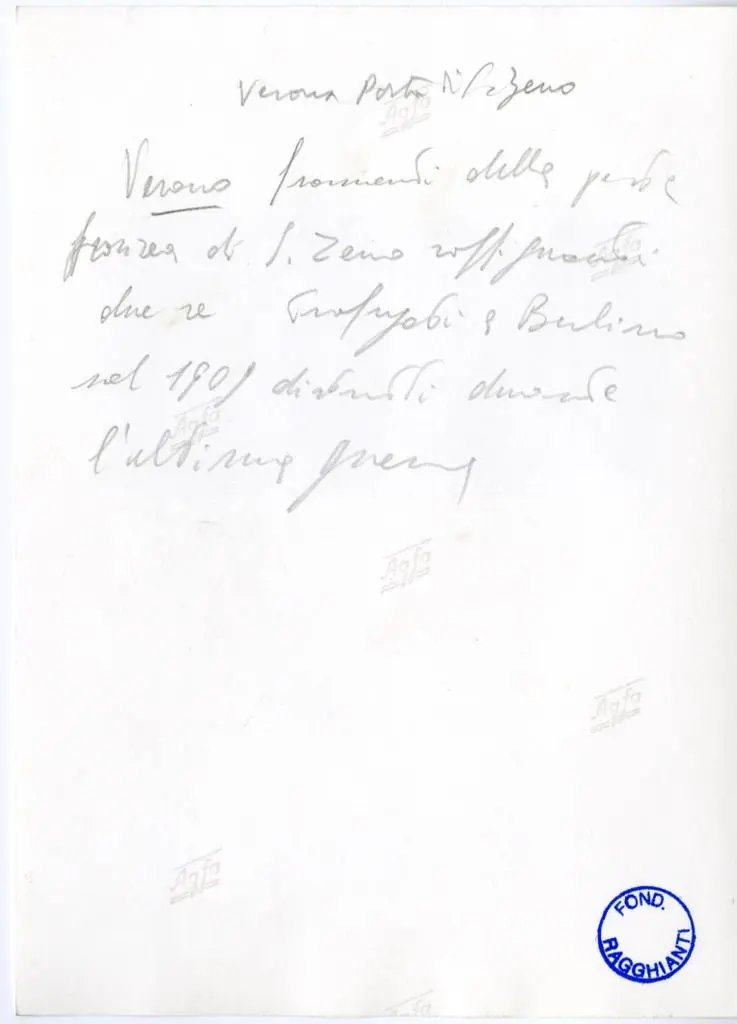 Verona Porta di S. Zeno
Agfa
Verona frammenti della porta
bronzea di S. Zeno raffiguranti
due re trafugati a Berlino
nel 1909 distrutti durante
l'ultima guerra
Agfa
Agfa
Agfa
Agfa
FOND.
RAGGHIANTI